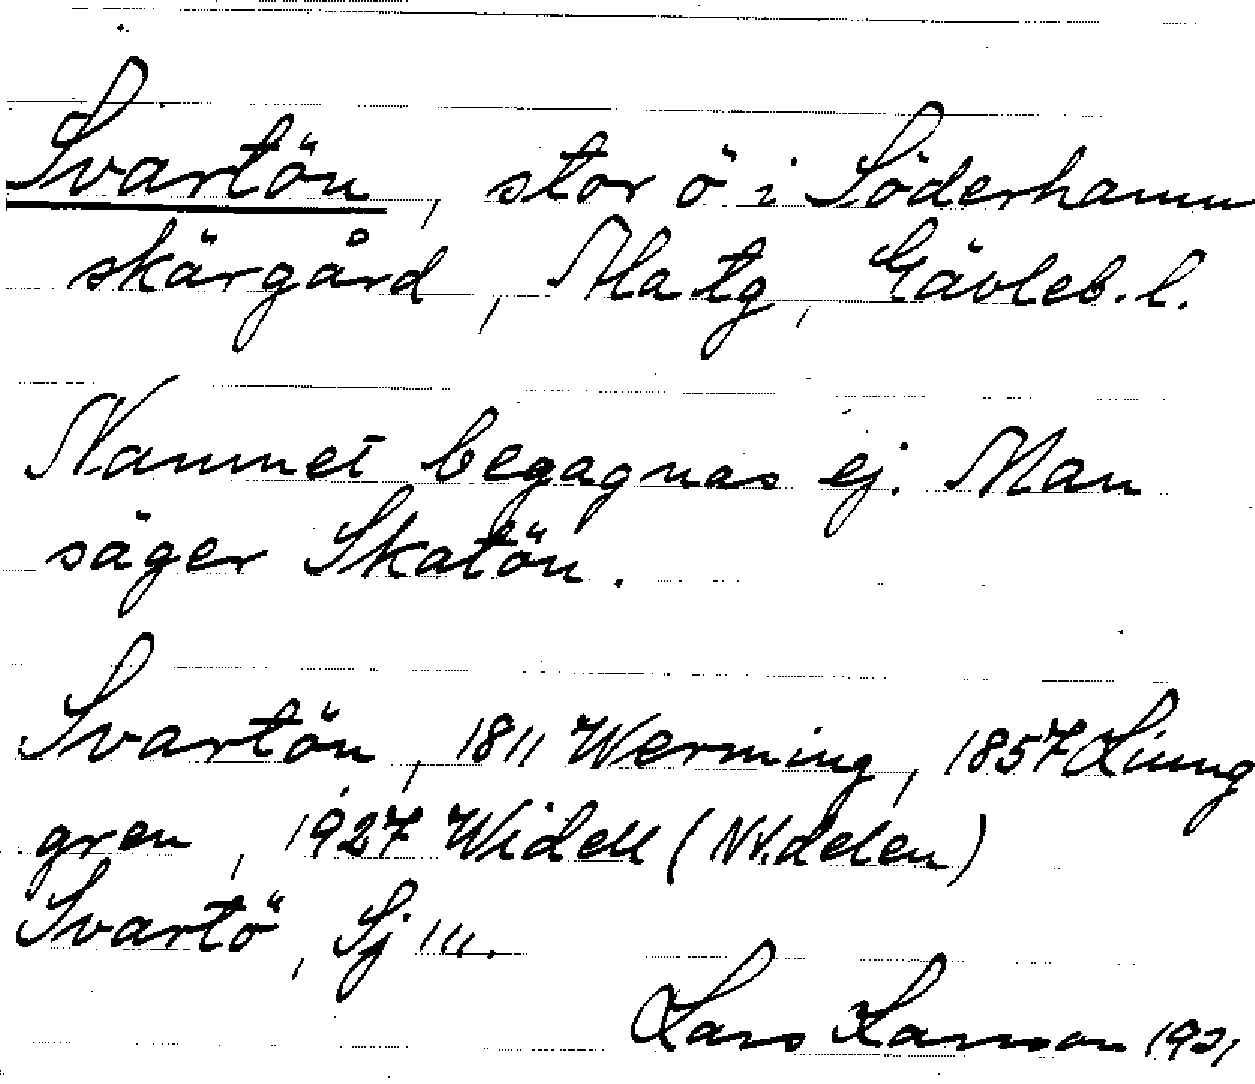 Svartön, stor ö i Söderhamn
skärgård, Matg, Gävleb. l.
Namnet begagnas ej. Man
säger Skatön.
Svartön, 1811 Werming, 1857 Liung
gren, 1927 Widell (NV. delen)
Svartö, Sj 111.
Lars Larsson